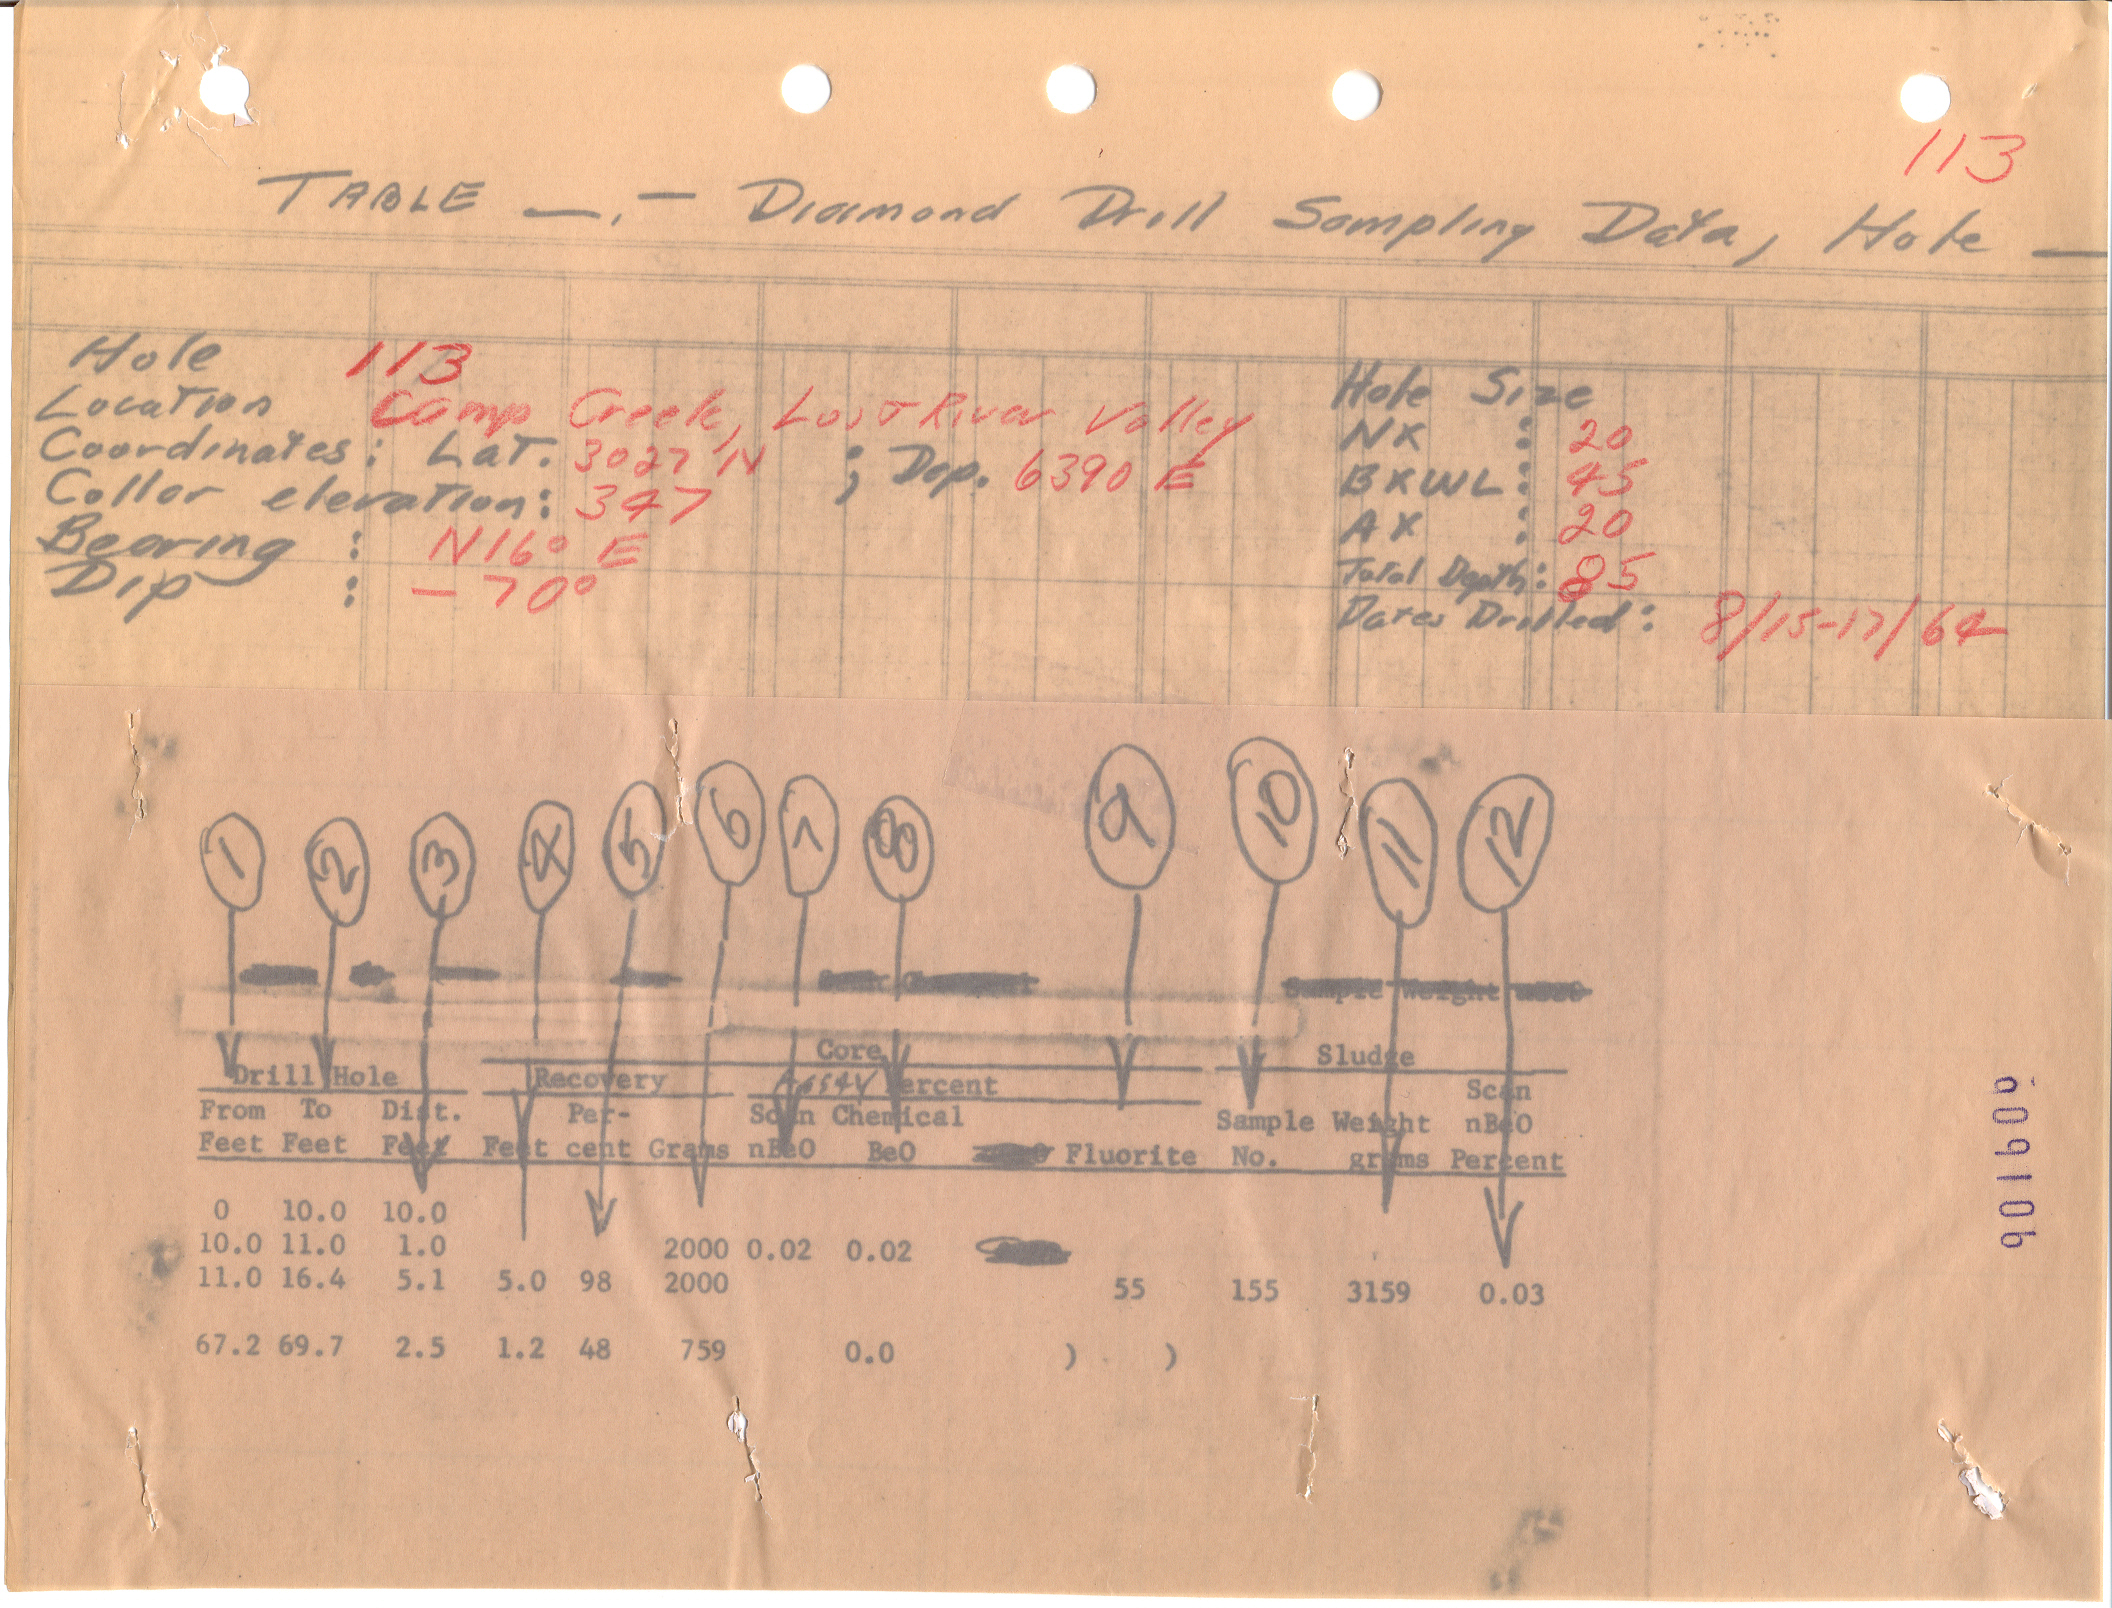 113
TABLE —.— Diamond Drill Sampling Data, Hole —
Hole 113
Location Camp Creek, Lost River Valley
Coordinates: Lat. 3027 N ; Dep. 6390 E
Collar elevation: 347
Bearing : N16° E
Dip : -70°
Hole Size
NX : 20
BXWL: 45
AX : 20
Total Depth: 85
Dates Drilled: 8/15-17/64
1 2 3 4 5 6 7 8 9 10 11 12
Sample Weight nBeO
Core Sludge
Drill Hole Recovery Assay Percent Scan
From To Dist. Per- Scan Chemical Sample Weight nBeO
Feet Feet Feet Feet cent Grams nBeO BeO Fluorite No. grams Percent
0 10.0 10.0
10.0 11.0 1.0 2000 0.02 0.02
11.0 16.4 5.1 5.0 98 2000 55 155 3159 0.03
67.2 69.7 2.5 1.2 48 759 0.0 ) )